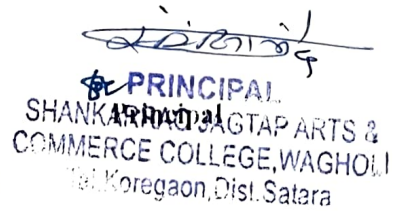 PRINCIPAL
Principal
SHANKARRAO JAGTAP ARTS &
COMMERCE COLLEGE, WAGHOLI
Tal. Koregaon, Dist. Satara